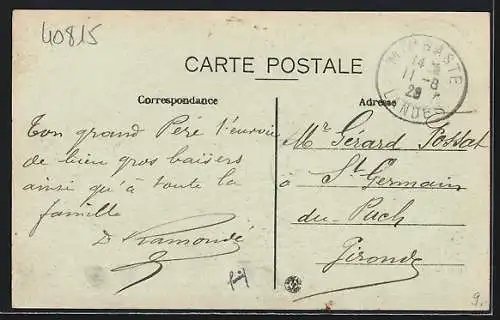 40815
CARTE POSTALE
Correspondance
Adresse
MIMBASTE
14
11-8
28
LANDES
Ton grand Père t'envoie
de bien gros baisers
ainsi qu'à toute la
famille
D
Mr Gérard
à St Germain
du Puch
Gironde
9.